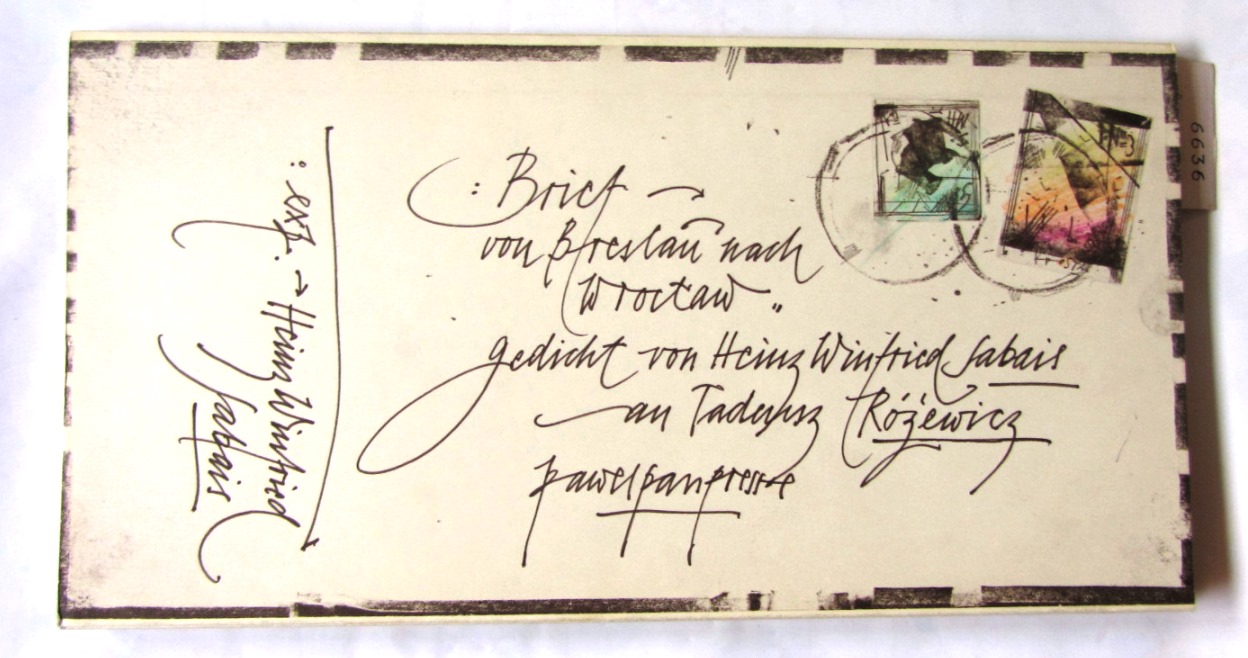 : Brief →
von Breslau nach
Wrocław "
gedicht von Heinz Winfried Sabais
an Tadeusz Różewicz
pawelpanpresse
: exp. → Heinz Winfried
Sabais
6636